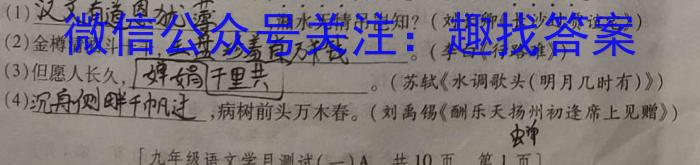 (1)汉文有道恩犹薄，湘水无情吊岂知？(刘长卿《长沙过贾谊宅》)
微信公众号关注：趣找答案
(2)金樽清酒斗十千，玉盘珍羞直万钱。(李白《行路难》)
(3)但愿人长久，千里共婵娟。(苏轼《水调歌头(明月几时有)》)
(4)沉舟侧畔千帆过，病树前头万木春。(刘禹锡《酬乐天扬州初逢席上见赠》)
婵
九年级语文学月测试(一)A 共10页 第1页